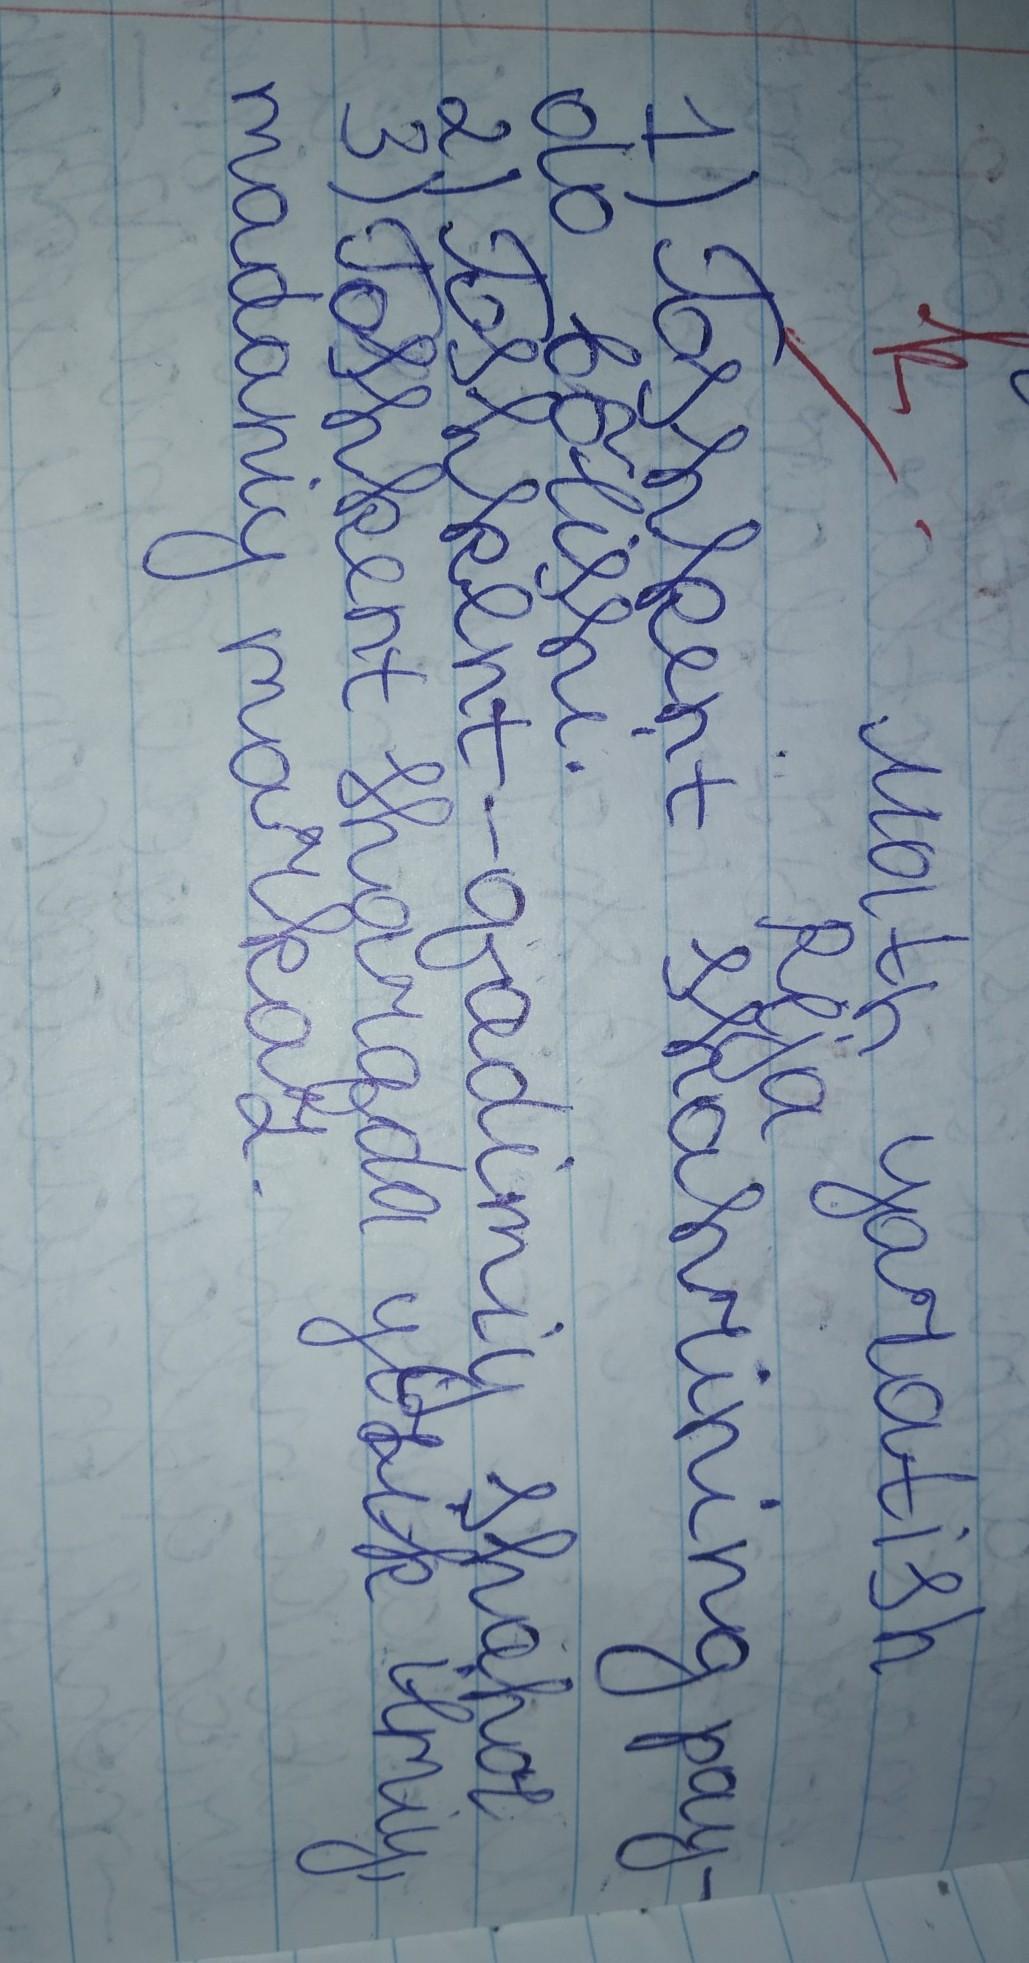 Matn yaratish
Reja
1) Toshkent shahrining pay-
do bo'lishi.
2) Toshkent-qadimiy shahar
3) Toshkent sharqda yirik ilmiy,
madaniy markaz.